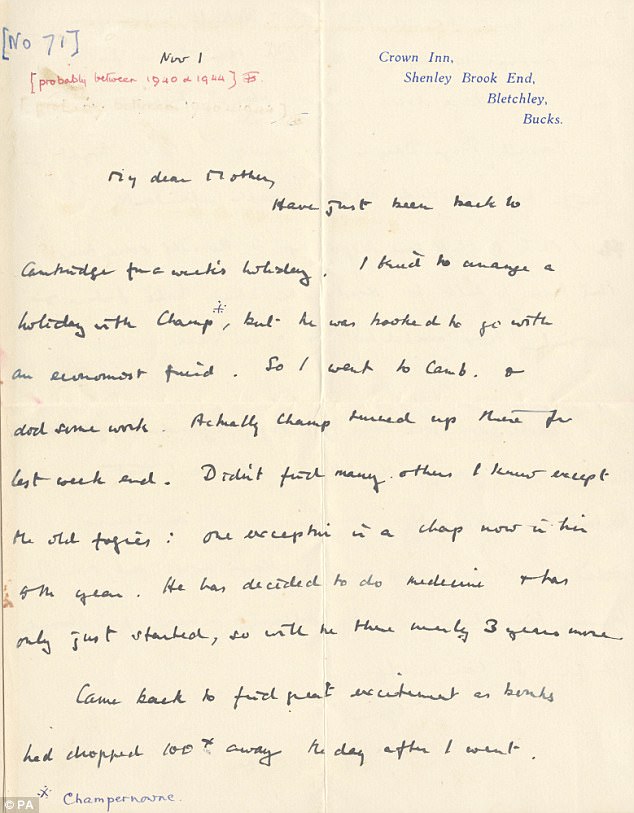 [No 71]
Nov 1
[probably between 1940 & 1944]
Crown Inn,
Shenley Brook End,
Bletchley,
Bucks.
My dear Mother,
Have just been back to
Cambridge for a week's holiday. I tried to arrange a
holiday with Champ*, but he was booked to go with
an economist friend. So I went to Camb. &
did some work. Actually Champ turned up there for
last week end. Didn't find many others I knew except
the old fogies: one exception is a chap now in his
5th year. He has decided to do medicine & has
only just started, so will be there nearly 3 years more
Came back to find great excitement as bombs
had dropped 100x away the day after I went.
* Champernowne.
© PA